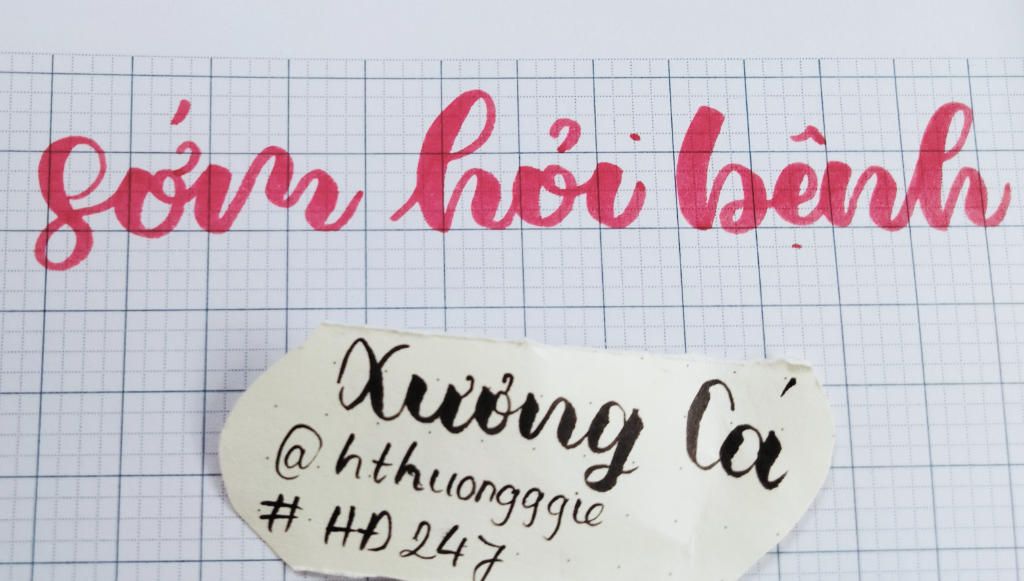 sớm hỏi bệnh
Xương Cá
@hthuongggie
# HĐ247